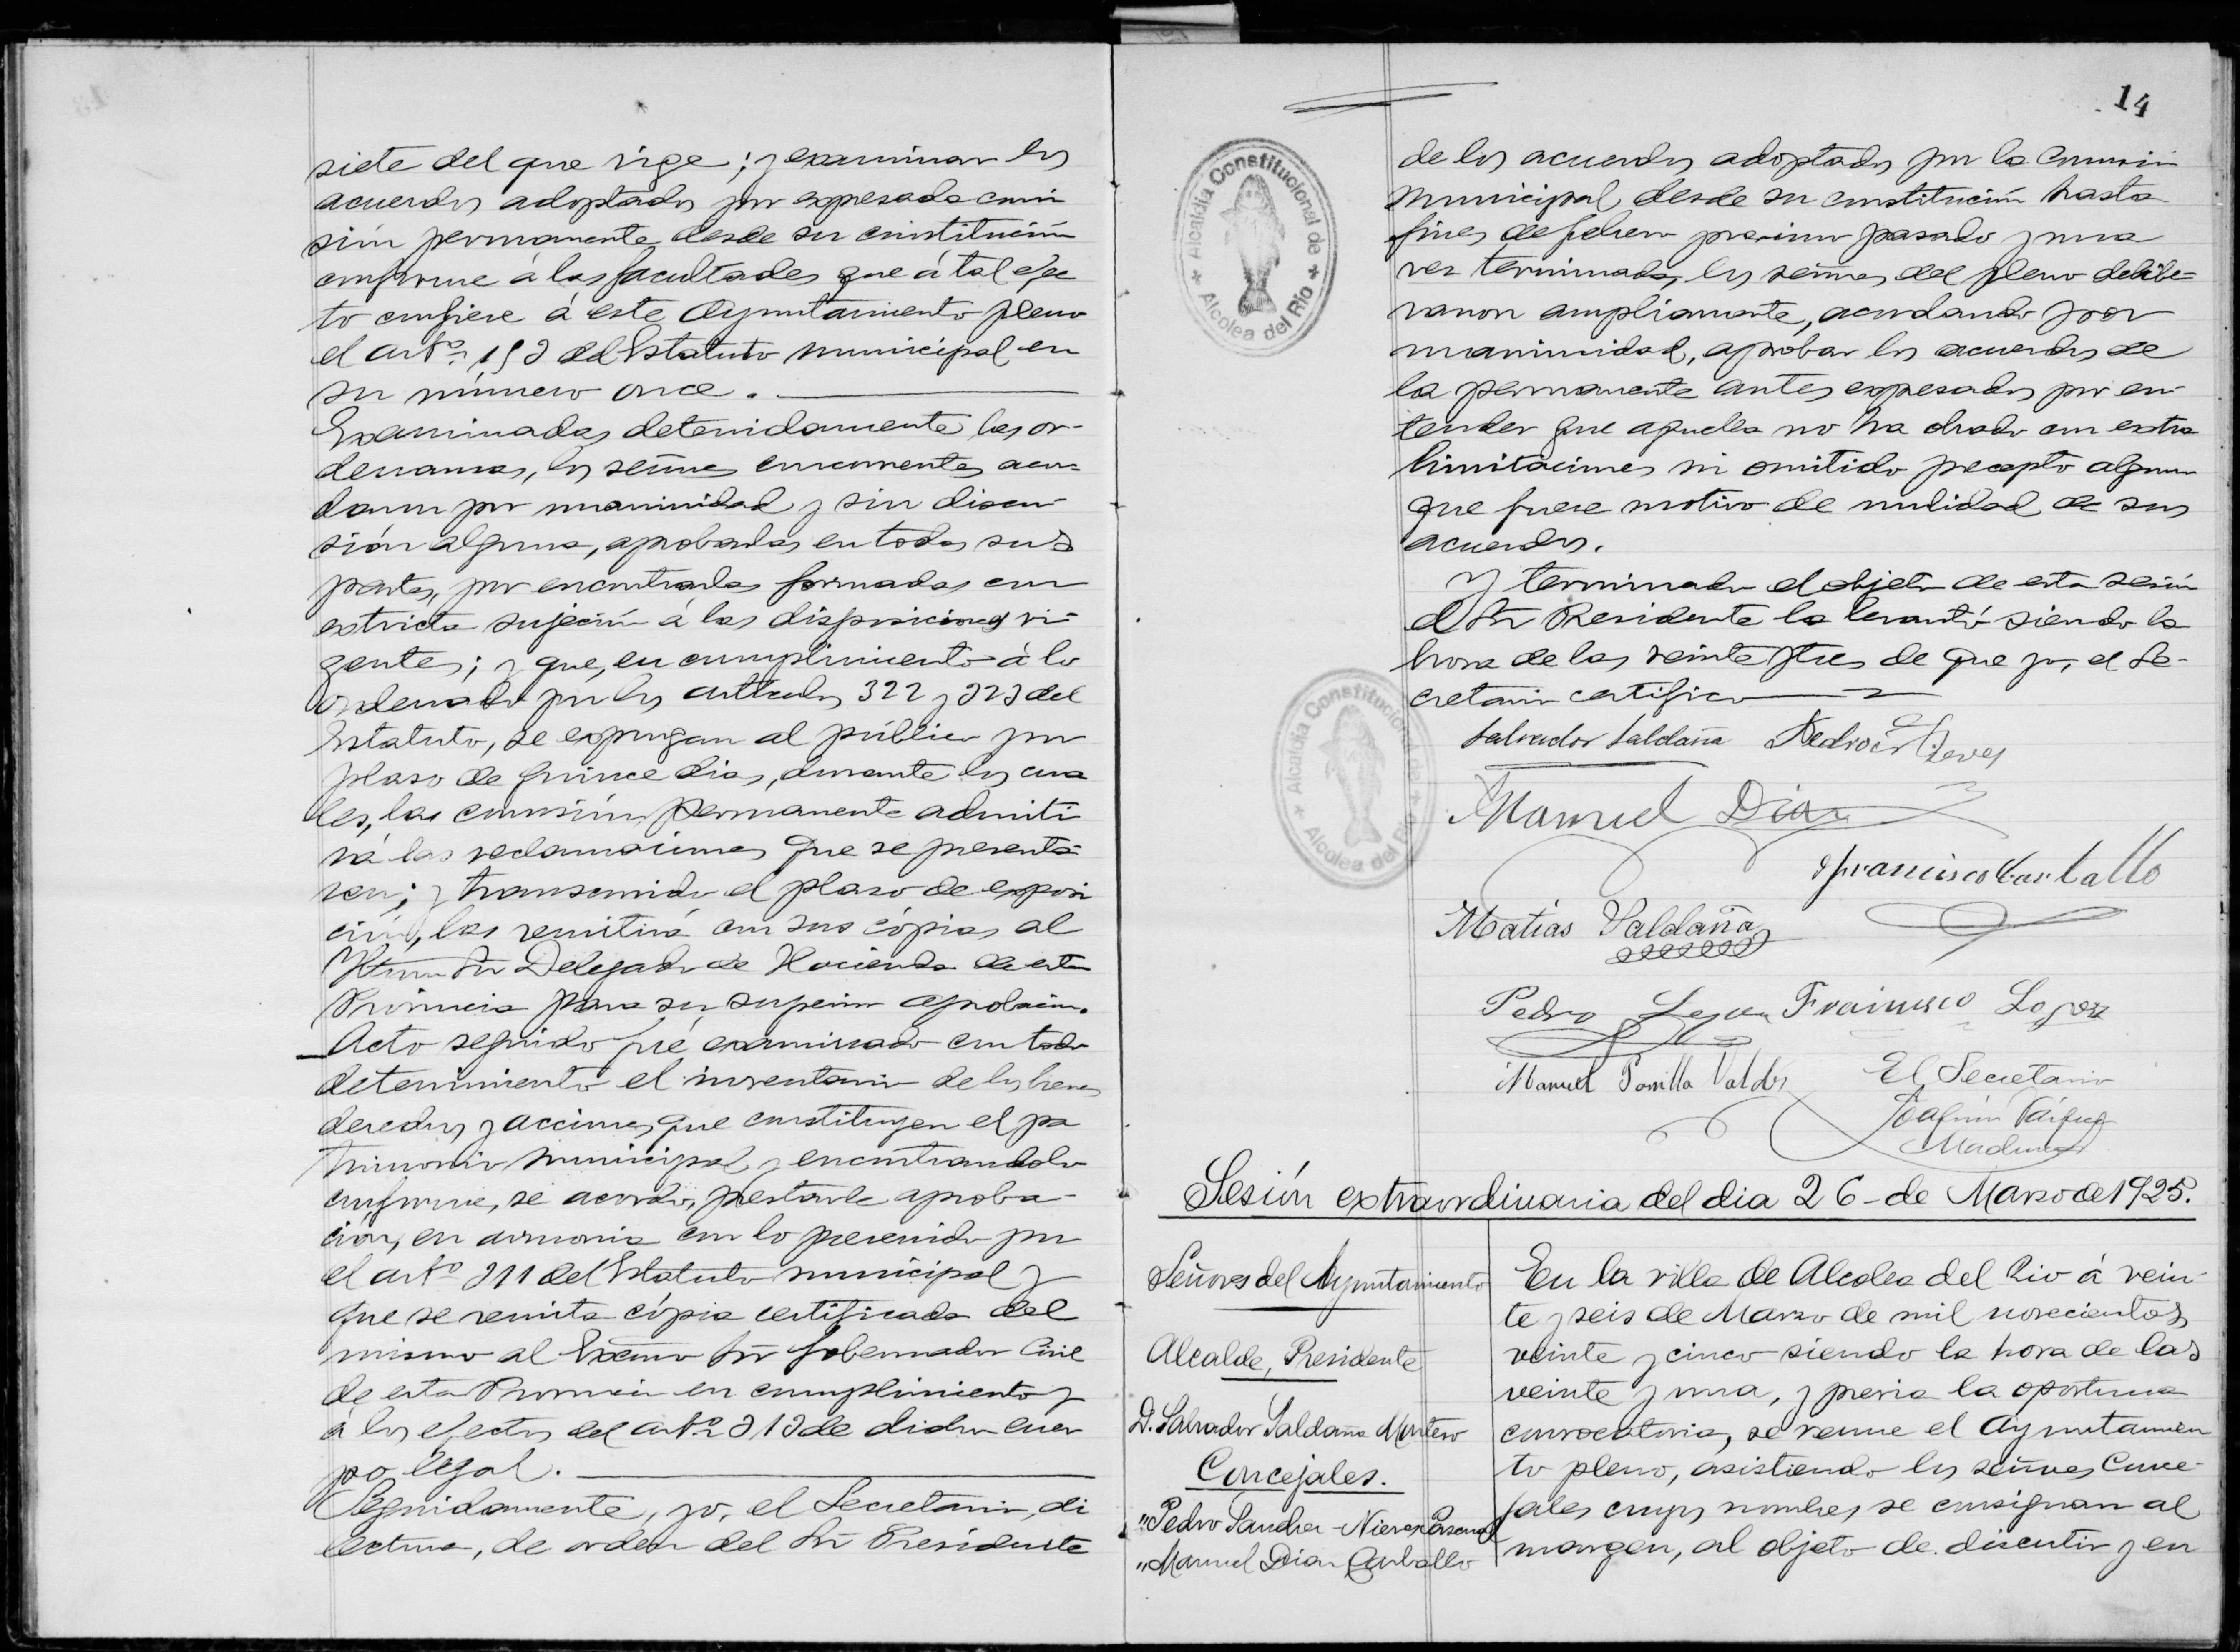 siete del que rige; y examinar los
acuerdos adoptados por expresada comi
sión permanente desde su constitución
conforme á las facultades que á tal efec
to confiere á este Ayuntamiento pleno
el artº 153 del Estatuto municipal en
su número once.
Examinadas detenidamente las or-
denanzas, los señores concurrentes acor-
daron por unanimidad y sin discu-
sión alguna, aprobarlas en todas sus
partes, por encontrarlas formadas con
estricta sujeción á las disposiciones vi-
gentes; y que, en cumplimiento á lo
ordenado por los artículos 322 y 323 del
Estatuto, se expongan al público por
plazo de quince dias, durante los cua
les, la comisión permanente admiti
rá las reclamaciones que se presenta-
ren; y transcurrido el plazo de exposi
ción, las remitirá con sus cópias al
Iltmo Sr Delegado de Hacienda de esta
Provincia para su superior aprobación.
Acto seguido fué examinado con todo
detenimiento el inventario de los bienes
derechos y acciones que constituyen el pa
trimonio municipal y encontrandolo
conforme, se acordó, prestarle aproba-
ción, en armonia con lo prevenido por
el artº 311 del Estatuto municipal y
que se remita cópia certificada del
mismo al Excmo Sr Gobernador Civil
de esta Provincia en cumplimiento y
á los efectos del artº 313 de dicho cuer
po legal.
Seguidamente, yo, el Secretario, di
lectura, de orden del Sr Presidente
14
Alcaldia Constitucional de
Alcolea del Rio
de los acuerdos adoptados por la Comisión
municipal desde su constitución hasta
fines de febrero proximo pasado y una
vez terminada, los señores del pleno delibe-
raron ampliamente, acordando por
unanimidad, aprobar los acuerdos de
la permanente antes expresados por en-
tender que aquella no ha obrado con extra
limitaciones ni omitido precepto alguno
que fuere motivo de nulidad de sus
acuerdos.
Y terminado el objeto de esta sesión
el Sr Presidente la levantó siendo la
hora de las veinte y tres de que yo, el Se-
cretario certifico
Alcaldia Constitucional de
Alcolea del Rio
Salvador Saldaña Pedro Nieves
Manuel Diaz
Francisco Carballo
Matías Saldaña
Pedro Francisco Lopez
Manuel Valdés El Secretario
Joaquin
Sesión extraordinaria del dia 26 de Marzo de 1925.
Señores del Ayuntamiento
Alcalde, Presidente
D. Salvador Saldaña Montero
Concejales.
" Pedro Sanchez-Nieves
" Manuel Diaz Carballo
En la villa de Alcolea del Rio á vein-
te y seis de Marzo de mil novecientos
veinte y cinco siendo la hora de las
veinte y una, y previa la oportuna
convocatoria, se reune el Ayuntamien
to pleno, asistiendo los señores Conce-
jales cuyos nombres se consignan al
margen, al objeto de discutir y en